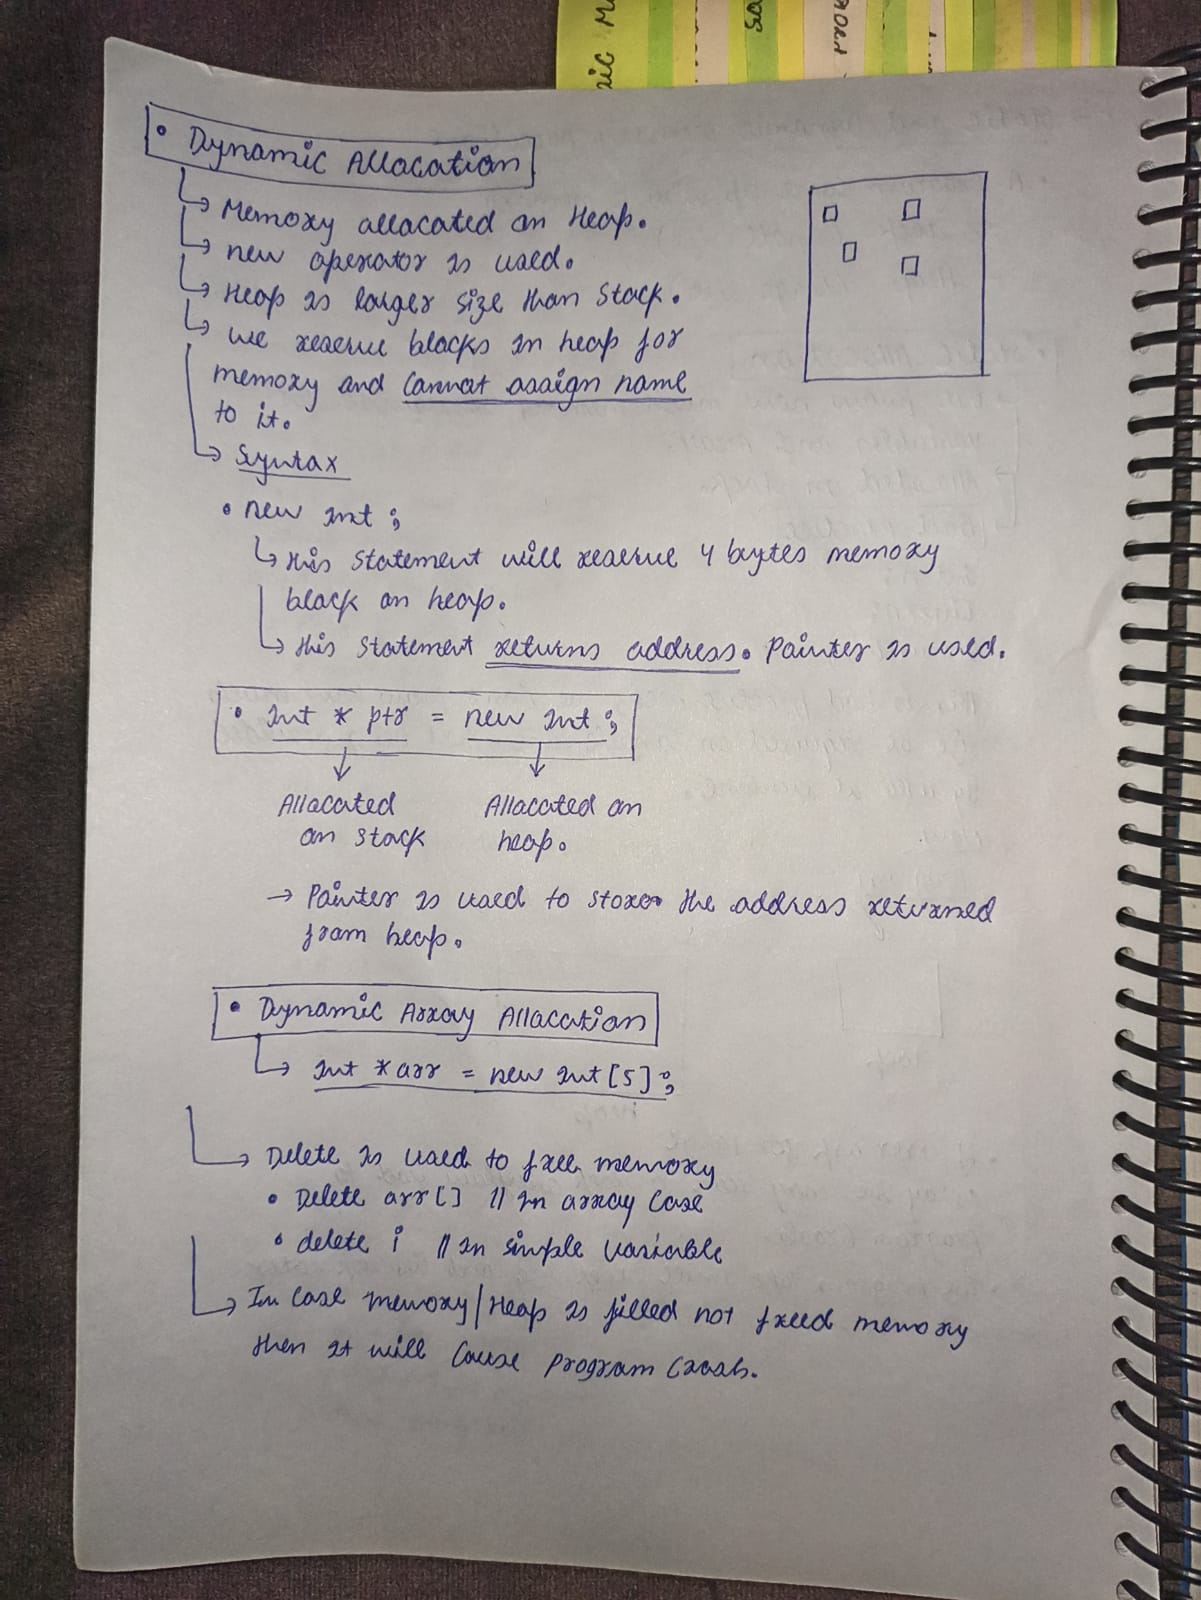 • Dynamic Allocation
↳ Memory allocated on Heap.
↳ new operator is used.
↳ Heap is larger size than Stack.
↳ we reserve blocks in heap for
memory and cannot assign name
to it.
↳ Syntax
• new int ;
↳ this statement will reserve 4 bytes memory
block on heap.
↳ this statement returns address. Pointer is used.
• int * ptr = new int ;
Allocated on Stack
Allocated on heap.
→ Pointer is used to store the address returned
from heap.
• Dynamic Array Allocation
↳ int *arr = new int [5] ;
↳ Delete is used to free memory
• Delete arr[] // in array case
• delete i // in simple variable
↳ In case memory/Heap is filled not freed memory
then it will cause program crash.